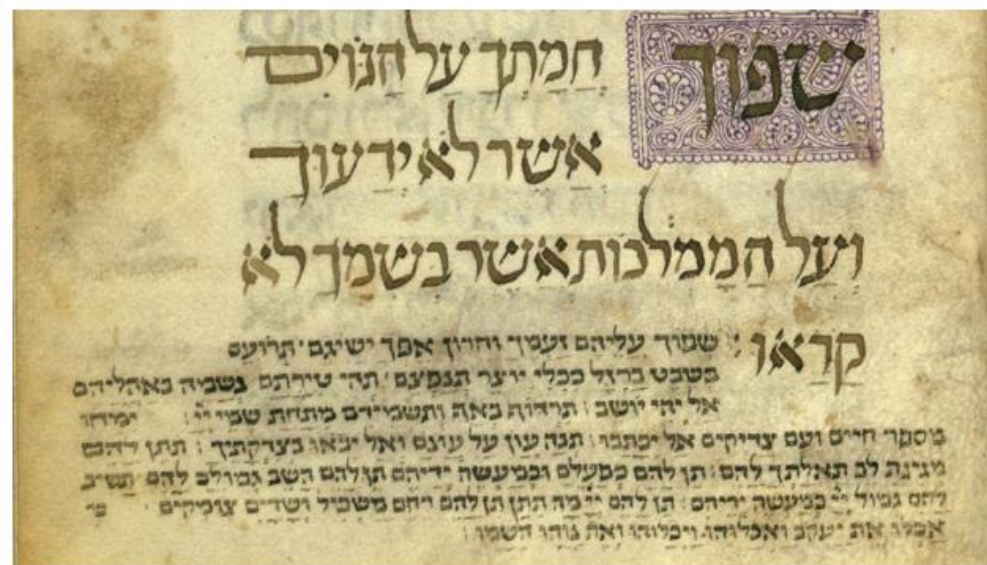 שפוך חֲמָתְךָ עַל הַגּוֹיִם
אֲשֶׁר לֹא יְדָעוּךָ
וְעַל הַמַּמְלָכוֹת אֲשֶׁר בְּשִׁמְךָ לֹא
קָרָאוּ: שפוך עליהם זעמך וחרון אפך ישיגם תרועם
בשבט ברזל ככלי יוצר תנפצם תהי טירתם נשמה באהליהם
אל יהי יושב: תרדוף באף ותשמידם מתחת שמי יי: ימחו
מספר חיים ועם צדיקים אל יכתבו: תנה עון על עונם ואל יבאו בצדקתך: תתן להם
מגינת לב תאלתך להם: תן להם כפעלם וכמעשה ידיהם תן להם השב גמולם להם תשיב
להם גמול יי כמעשה ידיהם: תן להם יי מה תתן תן להם רחם משכיל ושדים צומקים כי
אכלו את יעקב ואכלוהו ויכלוהו ואת נוהו השמו: